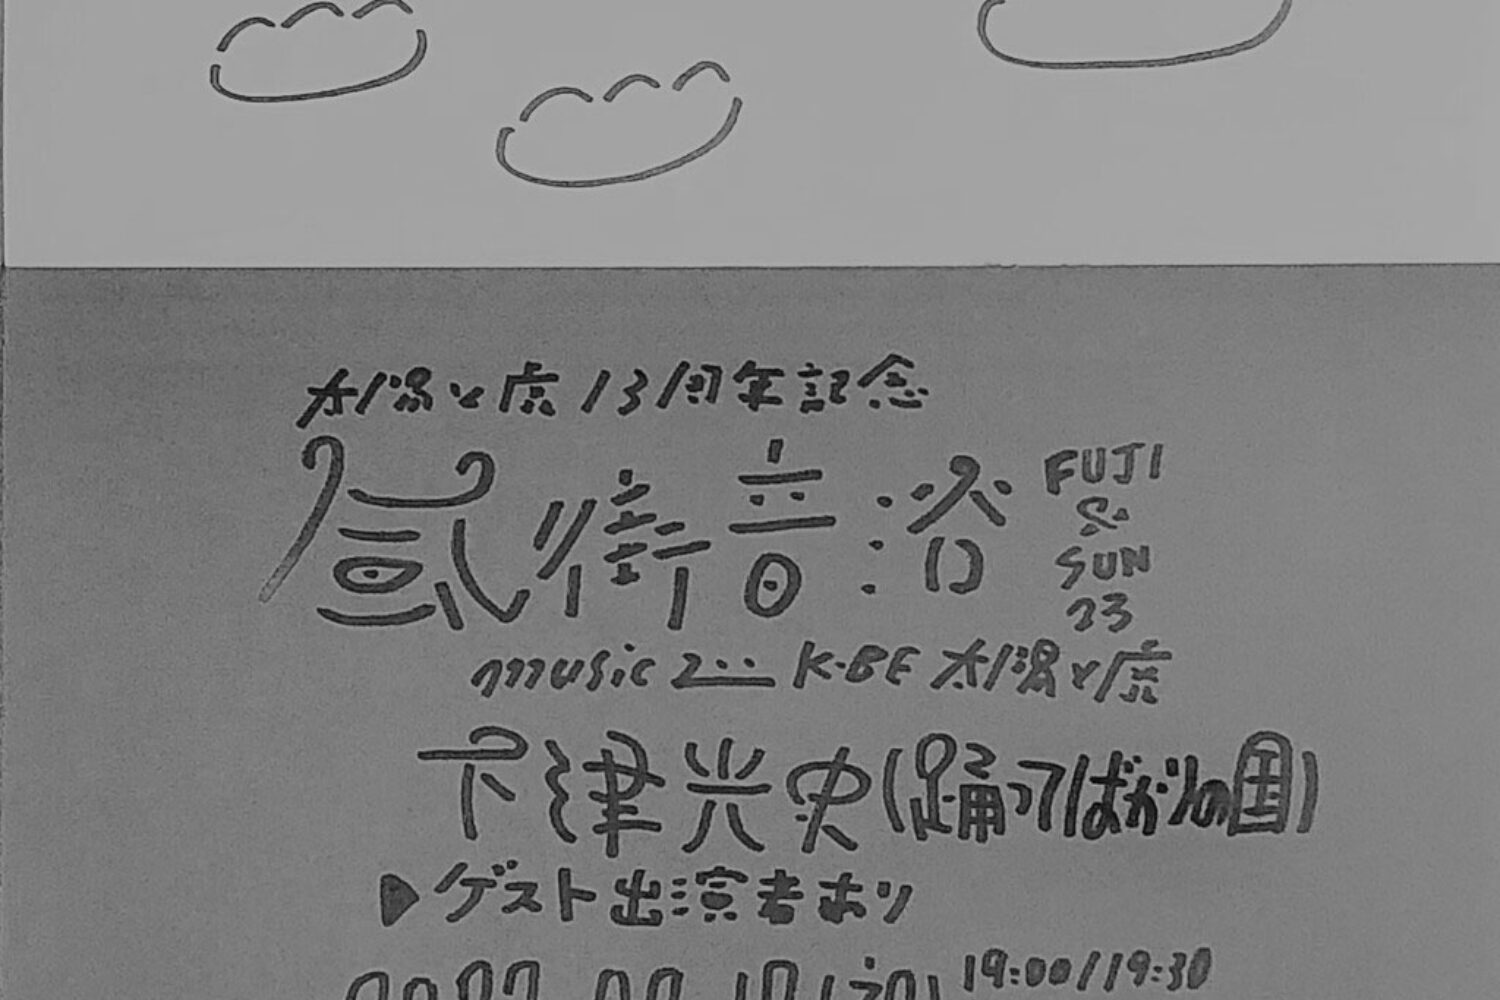 太陽と虎13周年記念
風街音浴 FUJI & SUN 23
music zoo KOBE 太陽と虎
下津光史(踊ってばかりの国)
▶ゲスト出演者あり
19:00/19:30